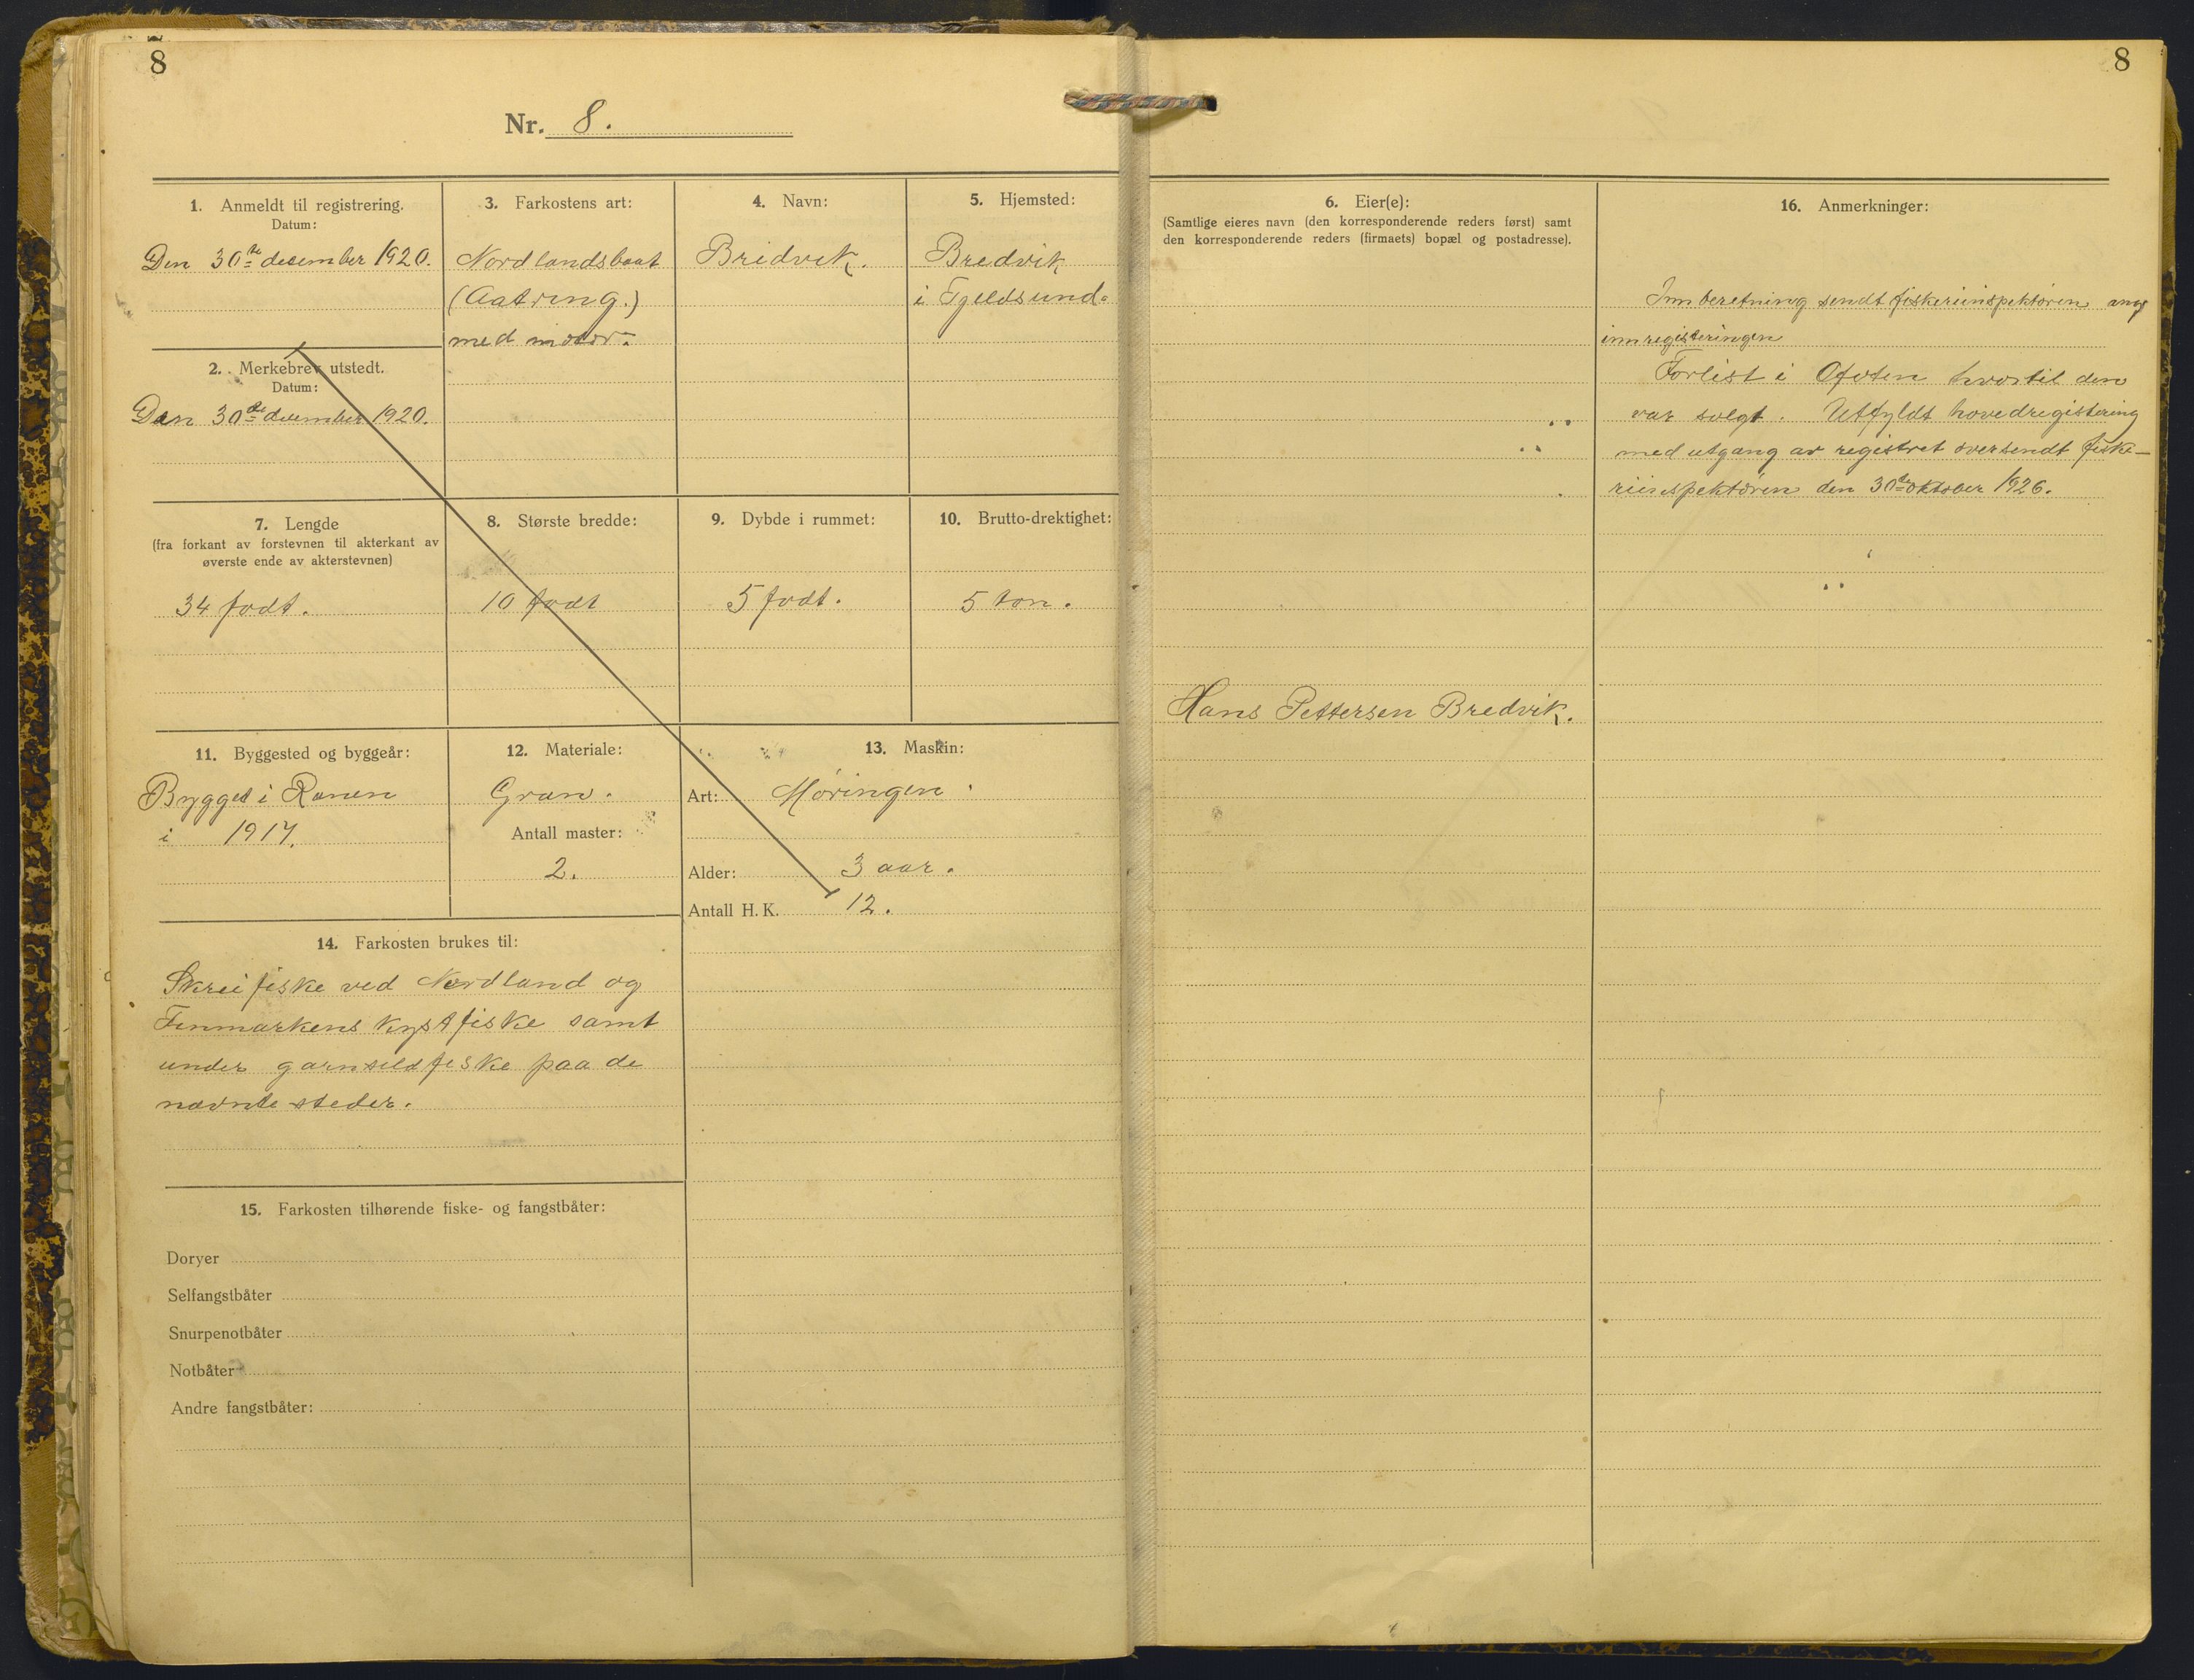 8
Nr. 8.
1. Anmeldt til registrering.
Datum:
Den 30te desember 1920.
2. Merkebrev utstedt.
Datum:
Den 30te desember 1920.
3. Farkostens art:
Nordlandsbaat
(Aatring.)
med motor.
4. Navn:
Bredvik.
5. Hjemsted:
Bredvik
i Tjeldsund.
7. Lengde
(fra forkant av forstevnen til akterkant av
øverste ende av akterstevnen)
34 fodt.
8. Største bredde:
10 fodt
9. Dybde i rummet:
5 fodt.
10. Brutto-drektighet:
5 ton.
11. Byggested og byggeår:
Bygget i Ranen
i 1917.
12. Materiale:
Gran.
Antall master:
2.
13. Maskin:
Art: Møringen.
Alder: 3 aar.
Antall H. K. 12.
14. Farkosten brukes til:
Skreifiske ved Nordland og
Finmarkens kystfiske samt
under garnsildfiske paa de
nævnte steder.
15. Farkosten tilhørende fiske- og fangstbåter:
Doryer
Selfangstbåter
Snurpenotbåter
Notbåter
Andre fangstbåter:
8
6. Eier(e):
(Samtlige eieres navn (den korresponderende reders først) samt
den korresponderende reders (firmaets) bopæl og postadresse).
Hans Pettersen Bredvik.
16. Anmerkninger:
Innberetning sendt fiskeriinspektøren ang
innregisteringen
Forlist i Ofoten hvortil den
var solgt. Utfyldt hovedregistering
med utgang av registret oversendt fiske-
riinspektøren den 30te oktober 1926.